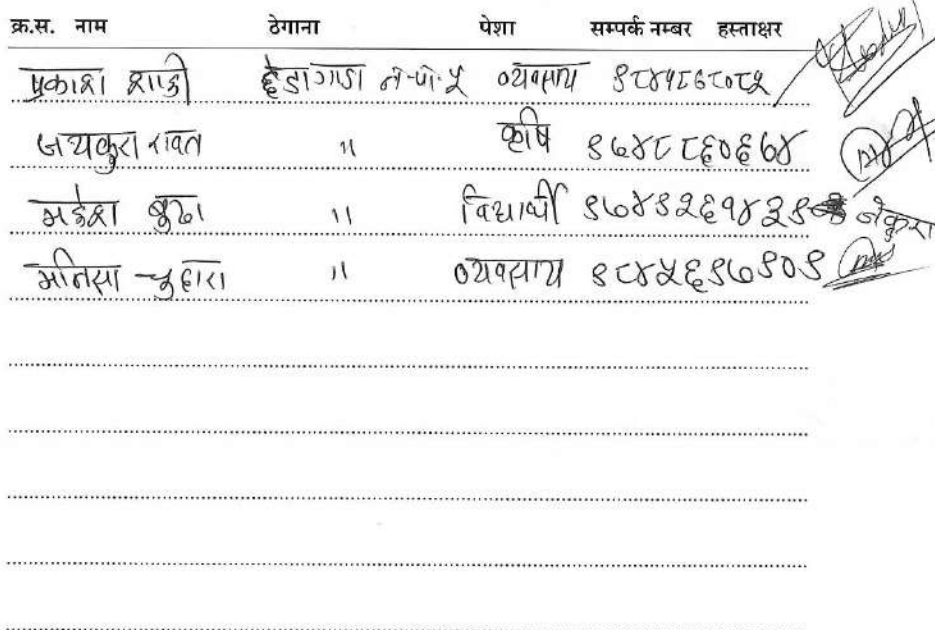 क्र.स. नाम ठेगाना पेशा सम्पर्क नम्बर हस्ताक्षर
प्रकाश शाही हेडागाडा न.पा.५ व्यवसाय ९८४५८६८०८५
जयकुरा रावत " कृषि ९७४८८६०६७४
महेश बुढा " विद्यार्थी ९७४९२६१४२९ जेकुरा
मनिसा चुहारा " व्यवसाय ९८४५६९७९०९